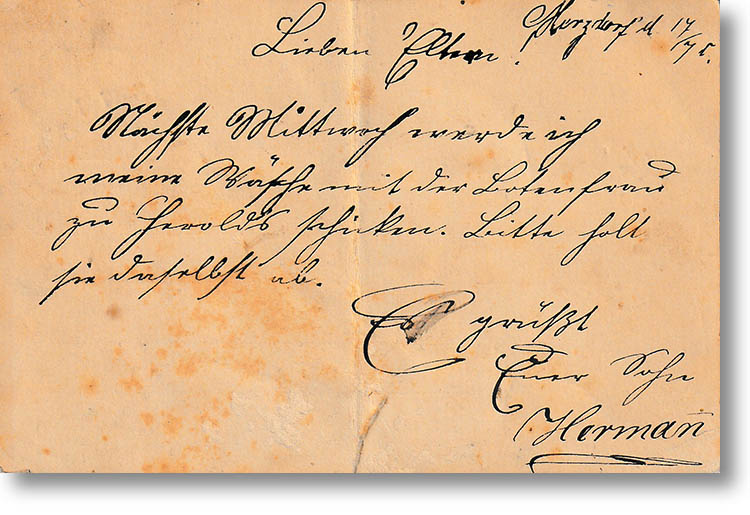 Morzdorf d 17/7 5.
Lieben Eltern!
Nächste Mittwoch werde ich
meine Wäsche mit der Botenfrau
zu Herolds schicken. Bitte holt
sie daselbst ab.
Es grüßt
Euer Sohn
Herman̄